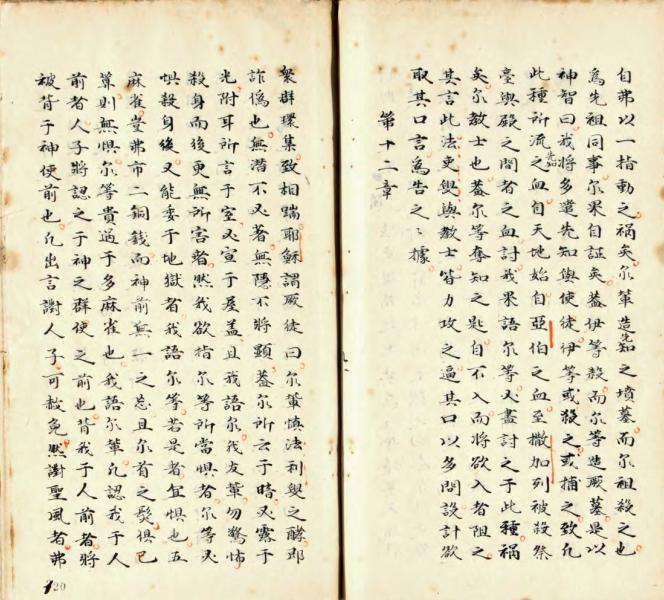 自弗以一指動之禍矣尔等造先知之墳墓而尔祖殺之也
為先祖同事尔果自証矣蓋伊等殺而尔等造厥墓是以
神智曰我將多遣先知與使徒伊等或殺之或捕之致凡
此種所流先知之血自天地始自亞伯之血至撒加列被殺祭
臺與殿之間者之血討我果語尔等又盡討之于此種禍
矣尔教士也蓋尔等奪知之匙自不入而將欲入者阻之
其言此法吏與教士等力攻之逼其口以多問設計欲
取其口言為告之之據
第十二章
眾群環集致相踹耶穌謂厥徒曰尔輩慎法利叟之酵即
詐偽也無潛不又著無隱不將顯蓋尔所云于暗又露于
光附耳所言于室又宣于屋蓋且我語尔我友輩勿驚怖
殺身而後更無所害者然我欲指尔等所當惧者尔等又
惧殺身後又能委于地獄者我語尔等若是者宜惧也五
麻雀豈弗市二銅錢而神前無一之忘且尔首之髮俱已
筭則無惧尔等貴過于多麻雀也我語尔輩凡認我于人
前者人子將認之于神之群使之前也背我于人前者將
被背于神使前也凡出言謝人子可赦免然謝聖風者弗
120